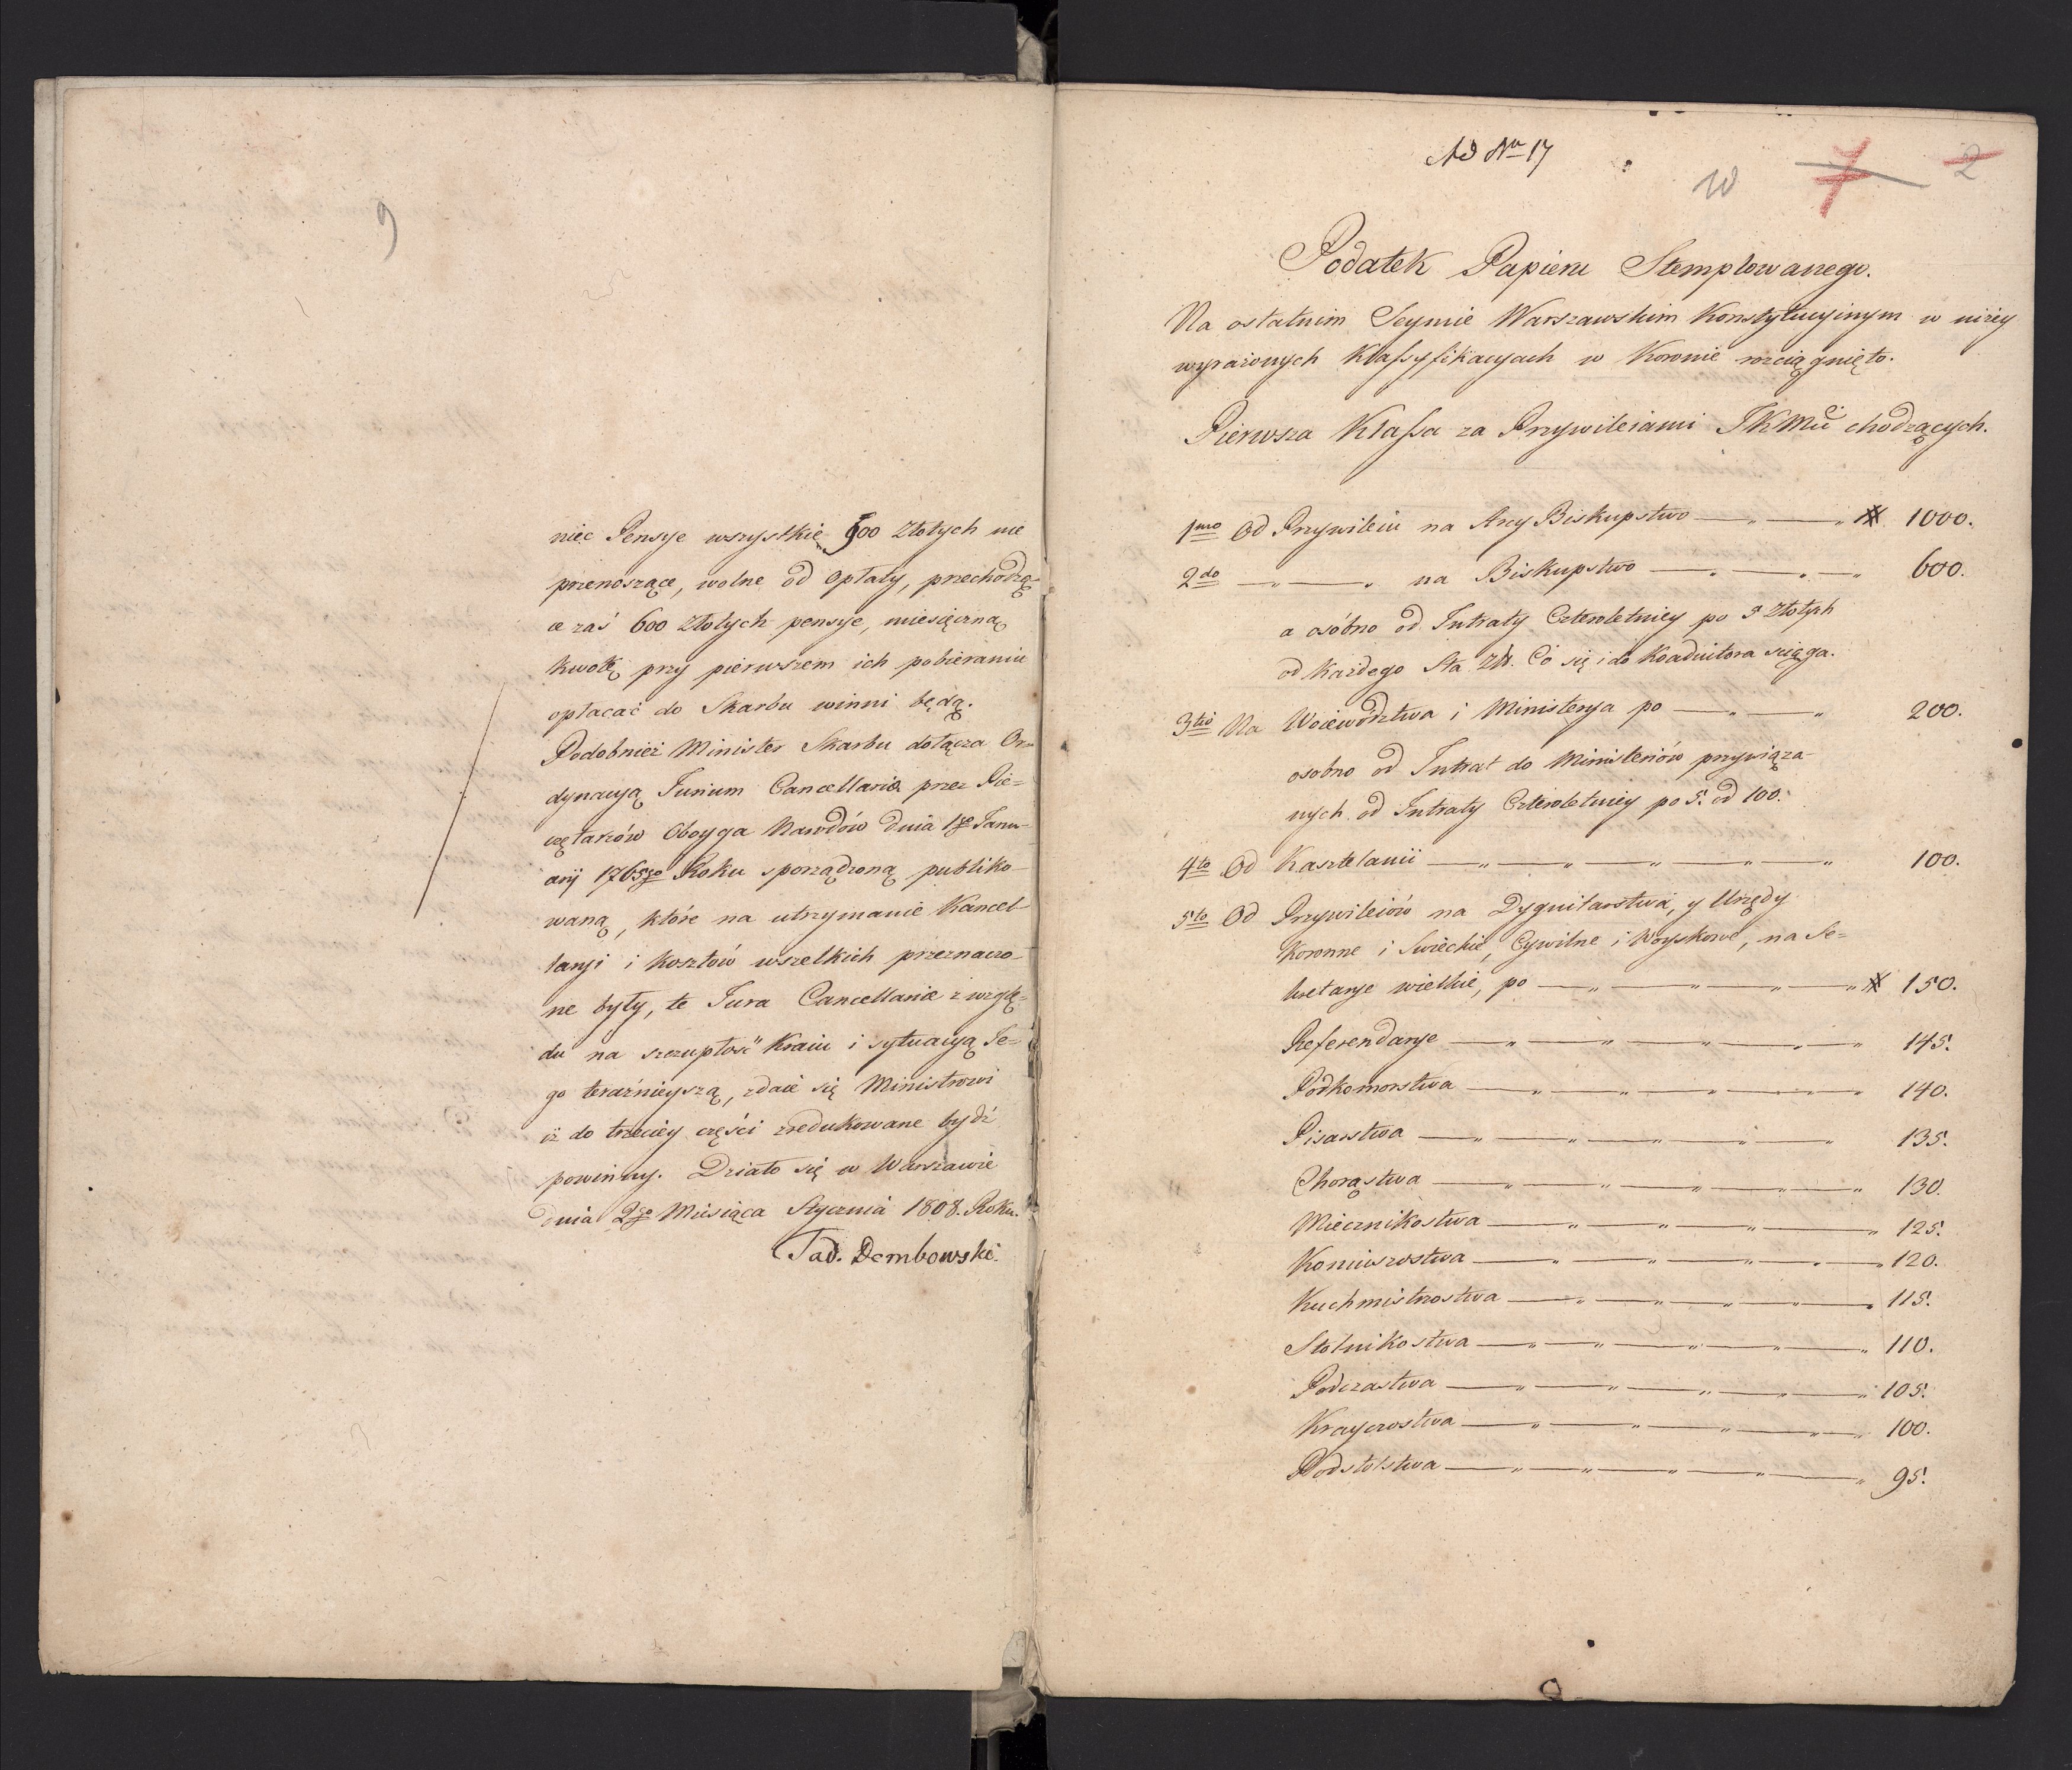 9
niec Pensye wszystkie 600 Złotych nie
przenoszące, wolne od opłaty, przechodzą-
ce zaś 600 Złotych pensye, miesięczną
kwotę przy pierwszem ich pobieraniu
opłacać do Skarbu winni będą.
Podobnież Minister Skarbu dołącza Or-
dynacyą Jurium Cancellariæ przez Pie-
czętarzów Oboyga Narodów dnia 1go Janu-
arij 1765go Roku sporządzoną publiko-
waną, które na utrzymanie Kancel-
laryi i kosztów wszelkich przeznaczo-
ne były, te Jura Cancellariæ z wzglę-
du na szczupłość Kraiu i sytuacyą Te-
go teraźnieyszą, zdaie się Ministrowi
iż do trzeciey części zredukowane bydź
powinny. Działo się w Warszawie
dnia 2go Miesiąca Stycznia 1808. Roku.
Tad. Dembowski.
Ad Nr 17
10 7 2
Podatek Papieru Stemplowanego.
Na ostatnim Seymie Warszawskim Konstytucyinym w niżey
wyrażonych Klassyfikacyach w Koronie rozciągnięto.
Pierwsza Klassa za Przywileiami JKMci chodzących.
1mo Od Przywileiu na Arcy Biskupstwo — „ — „ # 1000.
2do — „ — „ na Biskupstwo — „ — „ — „ 600.
a osóbno od Intraty Czteroletniey po 5 Złotych
od każdego Sta Zł. Co się i do Koadiutora sciąga.
3tio Na Woiewództwa i Ministerya po — „ — „ 200.
osobno od Intrat do Ministeriów przywiąza-
nych od Intraty Czteroletniey po 5. od 100.
4to Od Kasztelanii — „ — „ — „ — „ — „ 100.
5to Od Przywileiów na Dygnitarstwa, y Urzędy
Koronne i Swieckie, Cywilne i Woyskowe, na Se-
kretarye wielkie, po — „ — „ — „ — „ # 150.
Referendarye — „ — „ — „ — „ — „ 145.
Podkomorstwa — „ — „ — „ — „ — „ 140.
Pisarstwa — „ — „ — „ — „ — „ 135.
Chorąstwa — „ — „ — „ — „ — „ 130.
Miecznikostwa — „ — „ — „ — „ — „ 125.
Koniuszostwa — „ — „ — „ — „ — „ 120.
Kuchmistrzostwa — „ — „ — „ — „ — „ 115.
Stolnikostwa — „ — „ — „ — „ — „ 110.
Podczastwa — „ — „ — „ — „ — „ 105.
Krayczostwa — „ — „ — „ — „ — „ 100.
Podstolstwa — „ — „ — „ — „ — „ 95.